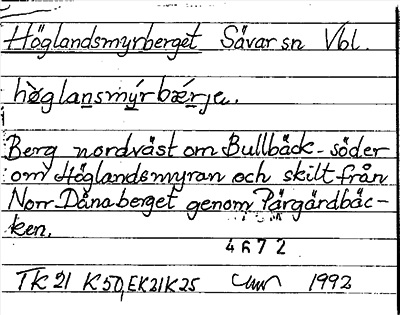 Höglandsmyrberget Sävar sn Vbl.
hòglansmýrbǽrje.
Berg nordväst om Bullbäck- söder
om Höglandsmyran och skilt från
Norr Dånaberget genom Pärgärdbäc-
ken.
4672
TK 21 K50, EK21K25 1992